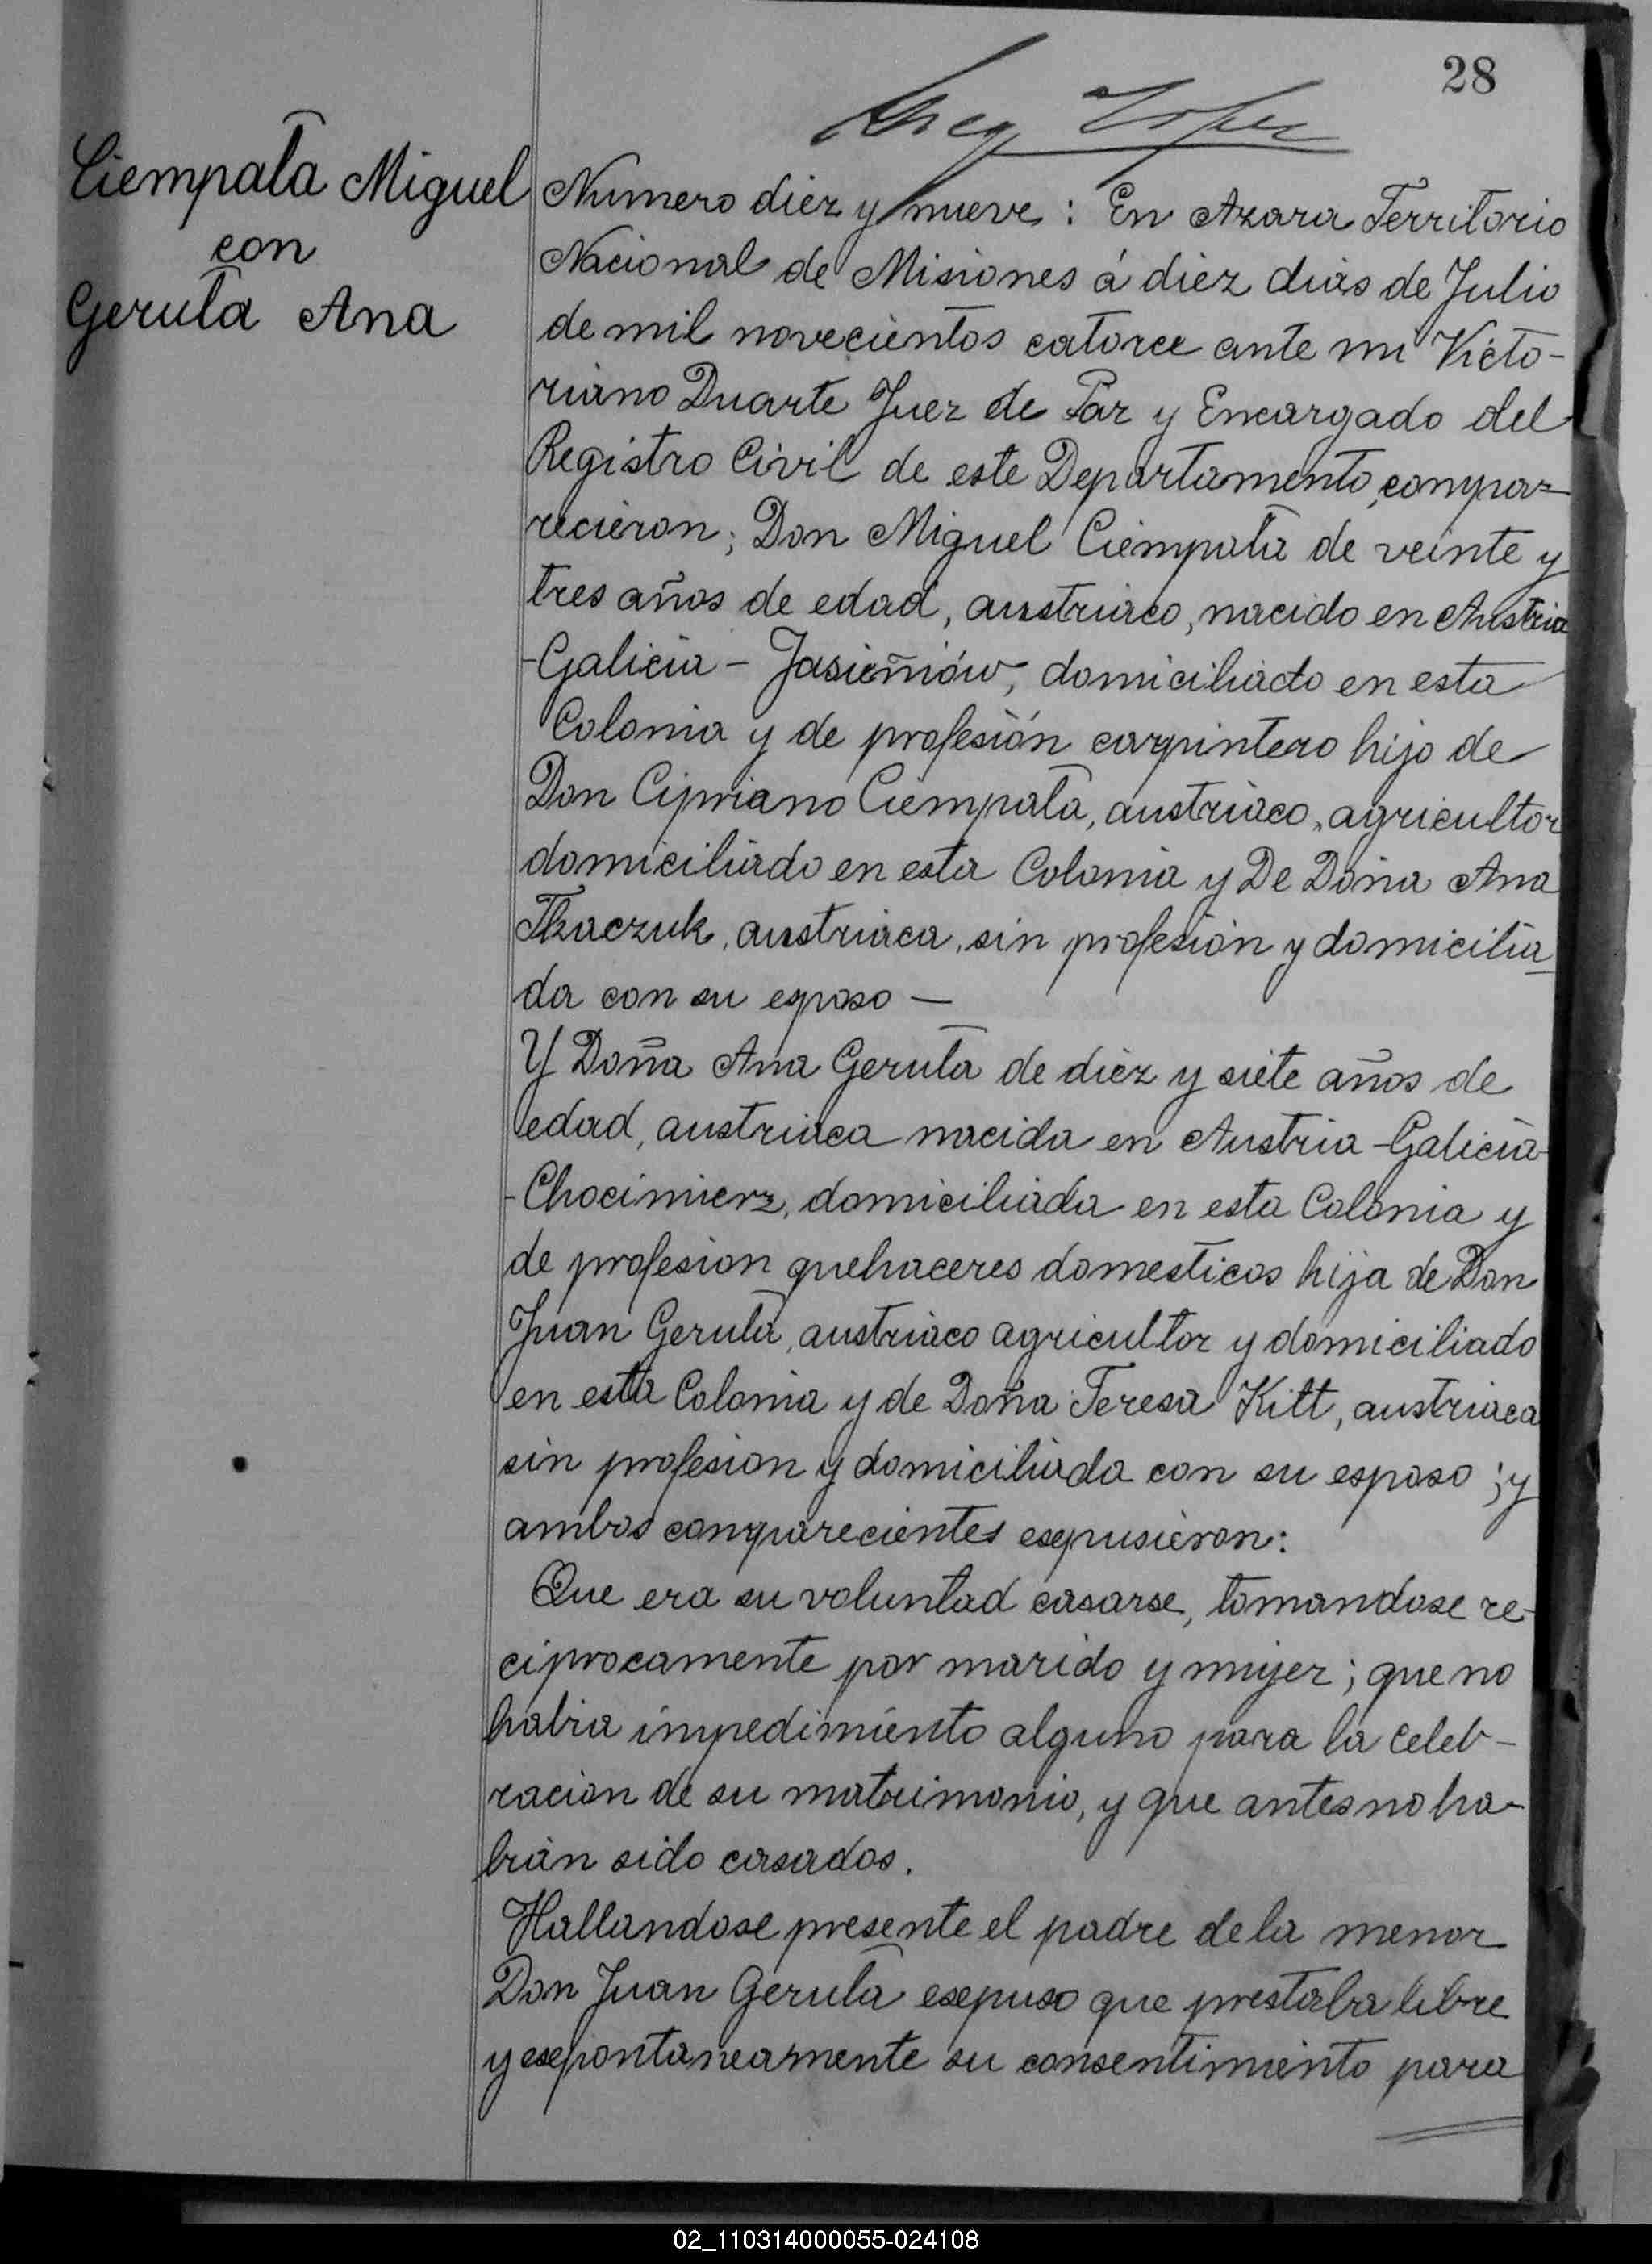 28
Ciempała Miguel
con
Geruła Ana
Numero diez y nueve : En Azara Territorio
Nacional de Misiones á diez dias de Julio
de mil novecientos catorce ante mi Victo-
riano Duarte Juez de Paz y Encargado del
Registro Civil de este Departamento, compa-
recieron; Don Miguel Ciempała de veinte y
tres años de edad, austriaco, nacido en Austria
-Galicia - Jasieñiów, domiciliado en esta
Colonia y de profesión carpintero hijo de
Don Cipriano Ciempała, austriaco, agricultor
domiciliado en esta Colonia y De Doña Ana
Tkaczuk, austriaca, sin profesión y domicilia
da con su esposo —
Y Doña Ana Geruła de diez y siete años de
edad, austriaca nacida en Austria -Galicia-
-Chocimierz, domiciliada en esta Colonia y
de profesion quehaceres domesticos hija de Don
Juan Geruła, austriaco agricultor y domiciliado
en esta Colonia y de Doña Teresa Kitt, austriaca
sin profesion y domiciliada con su esposo ; y
ambos comparecientes expusieron:
Que era su voluntad casarse, tomandose re-
ciprocamente por marido y mujer; que no
habia impedimiento alguno para la celeb-
racion de su matrimonio, y que antes no ha-
bian sido casados.
Hallandose presente el padre de la menor
Don Juan Geruła expuso que prestaba libre
y expontaneamente su consentimiento para
02_110314000055-024108